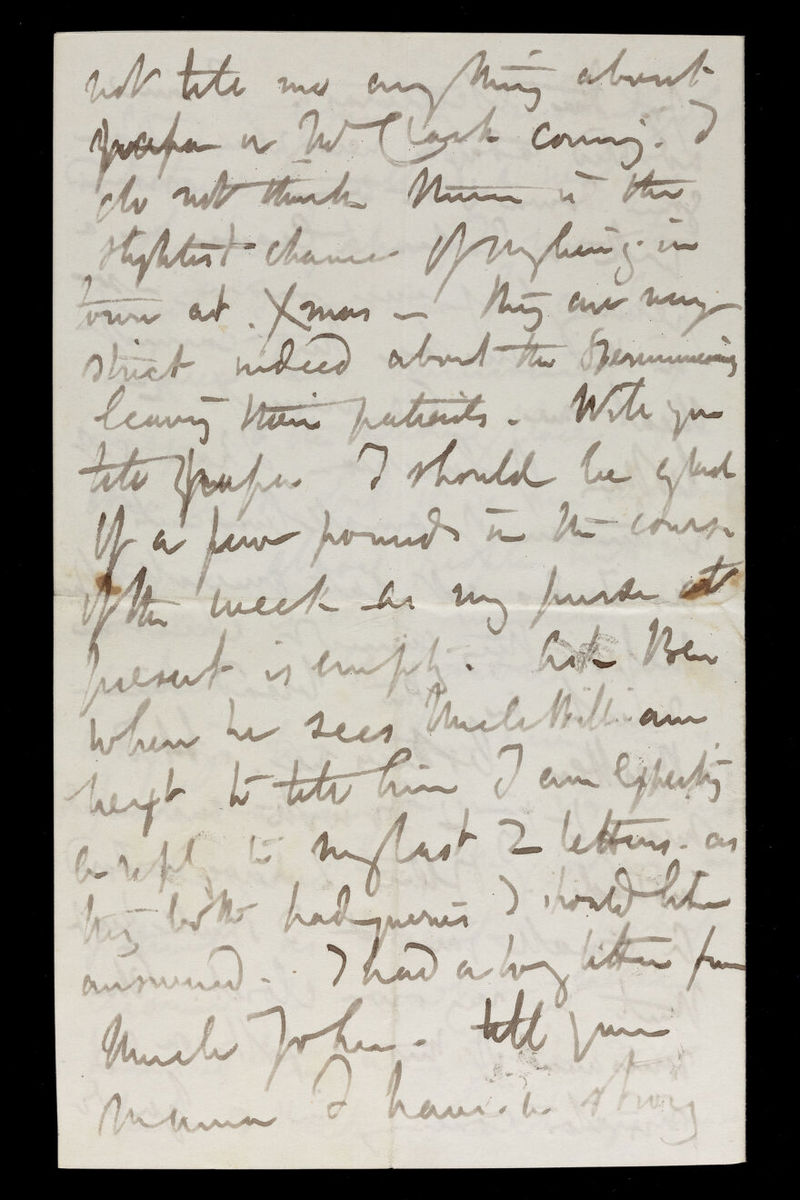 not tell me anything about
papa or Mr Clark coming. I
do not think there is the
slightest chance of my being in
town at Xmas – they are very
strict indeed about the
leaving their patients. Will you
tell papa I should be glad
of a few pounds in the course
of the week as my purse at
present is empty. Ask Ben
when he sees Uncle William
next to tell him I am expecting
a reply to my last 2 letters. as
they both had queries I should like
answered. I had a long letter from
Uncle John. tell your
Mama I have a strong